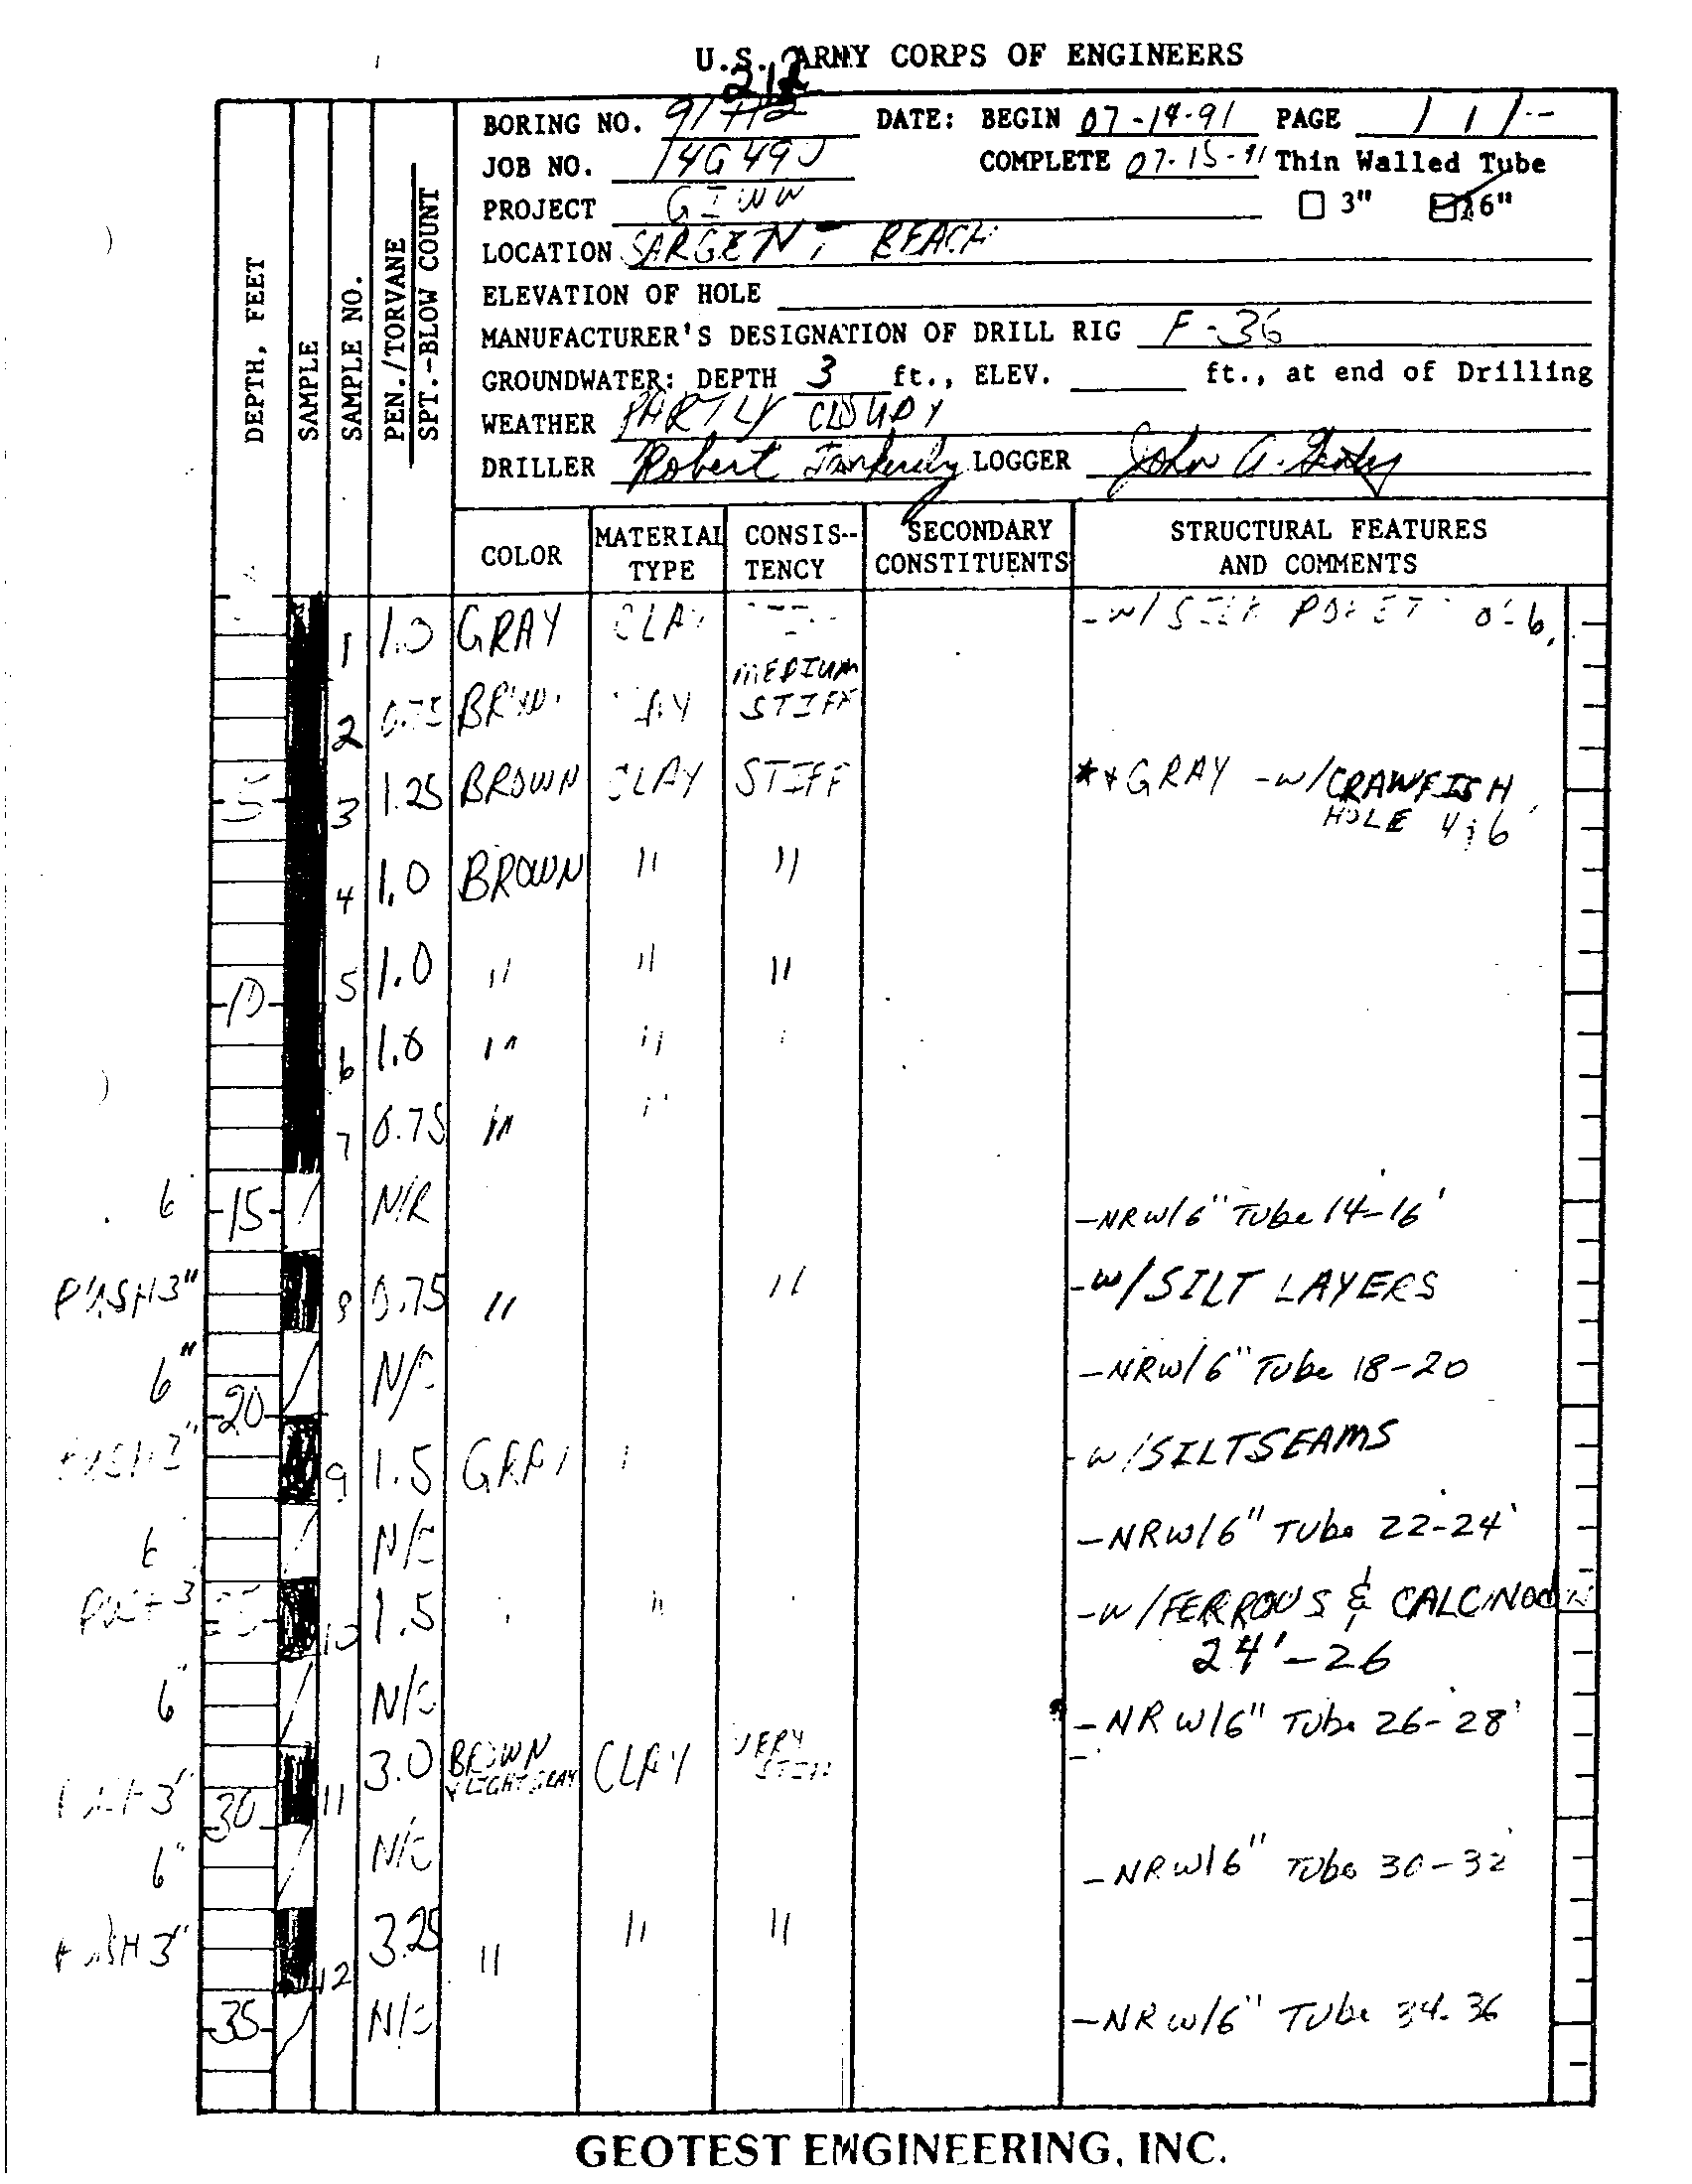 U.S. ARMY CORPS OF ENGINEERS
212
BORING NO. 91-112 DATE: BEGIN 07-14-91 PAGE 1 / 1
JOB NO. 14G49J COMPLETE 07-15-91 Thin Walled Tube
PROJECT GIWW 3" 6"
LOCATION SARGENT BEACH
ELEVATION OF HOLE
MANUFACTURER'S DESIGNATION OF DRILL RIG F-36
GROUNDWATER: DEPTH 3 ft., ELEV. ft., at end of Drilling
WEATHER PARTLY CLOUDY
DRILLER Robert LOGGER John A.
DEPTH, FEET
SAMPLE
SAMPLE NO.
PEN./TORVANE
SPT.-BLOW COUNT
COLOR MATERIAL TYPE CONSIS-TENCY SECONDARY CONSTITUENTS STRUCTURAL FEATURES AND COMMENTS
1 1.0 GRAY CLAY -W/
MEDIUM
2 0.75 BRWN. CLAY STIFF
5 3 1.25 BROWN CLAY STIFF **GRAY -W/CRAWFISH
HOLE 4;6
4 1.0 BROWN " "
10 5 1.0 " " "
6 1.0 " "
7 0.75 " "
6 15 N/R -NRW/6" Tube 14-16'
PUSH 3" 8 0.75 " " -W/SILT LAYERS
6" 20 -NRW/6" Tube 18-20
PUSH 3" 9 1.5 GRAY -W/SILTSEAMS
6 -NRW/6" Tube 22-24'
3 10 1.5 " -W/FERROUS & CALC.NOD
24'-26
6" -NR W/6" Tube 26-28'
PUSH 3" 30 11 3.0 BROWN & LIGHT GRAY CLAY VERY STIFF
6" -NRW/6" Tube 30-32'
PUSH 3" 12 3.25 " " "
35 -NR W/6" Tube 34-36
GEOTEST ENGINEERING, INC.